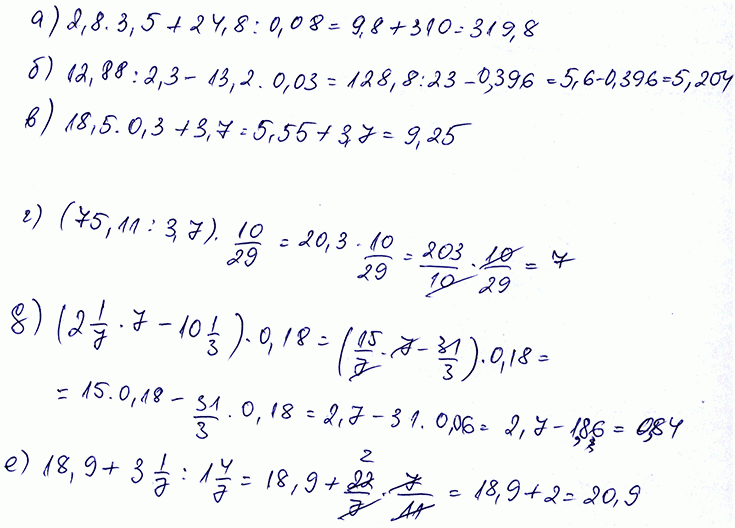 а) 2,8 · 3,5 + 24,8 : 0,08 = 9,8 + 310 = 319,8
б) 12,88 : 2,3 - 13,2 · 0,03 = 128,8 : 23 - 0,396 = 5,6 - 0,396 = 5,204
в) 18,5 · 0,3 + 3,7 = 5,55 + 3,7 = 9,25
г) (75,11 : 3,7) · 10/29 = 20,3 · 10/29 = 203/10 · 10/29 = 7
д) (2 1/7 · 7 - 10 1/3) · 0,18 = (15/7 · 7 - 31/3) · 0,18 =
= 15 · 0,18 - 31/3 · 0,18 = 2,7 - 31 · 0,06 = 2,7 - 1,86 = 0,84
е) 18,9 + 3 1/7 : 1 4/7 = 18,9 + 22/7 · 7/11 = 18,9 + 2 = 20,9